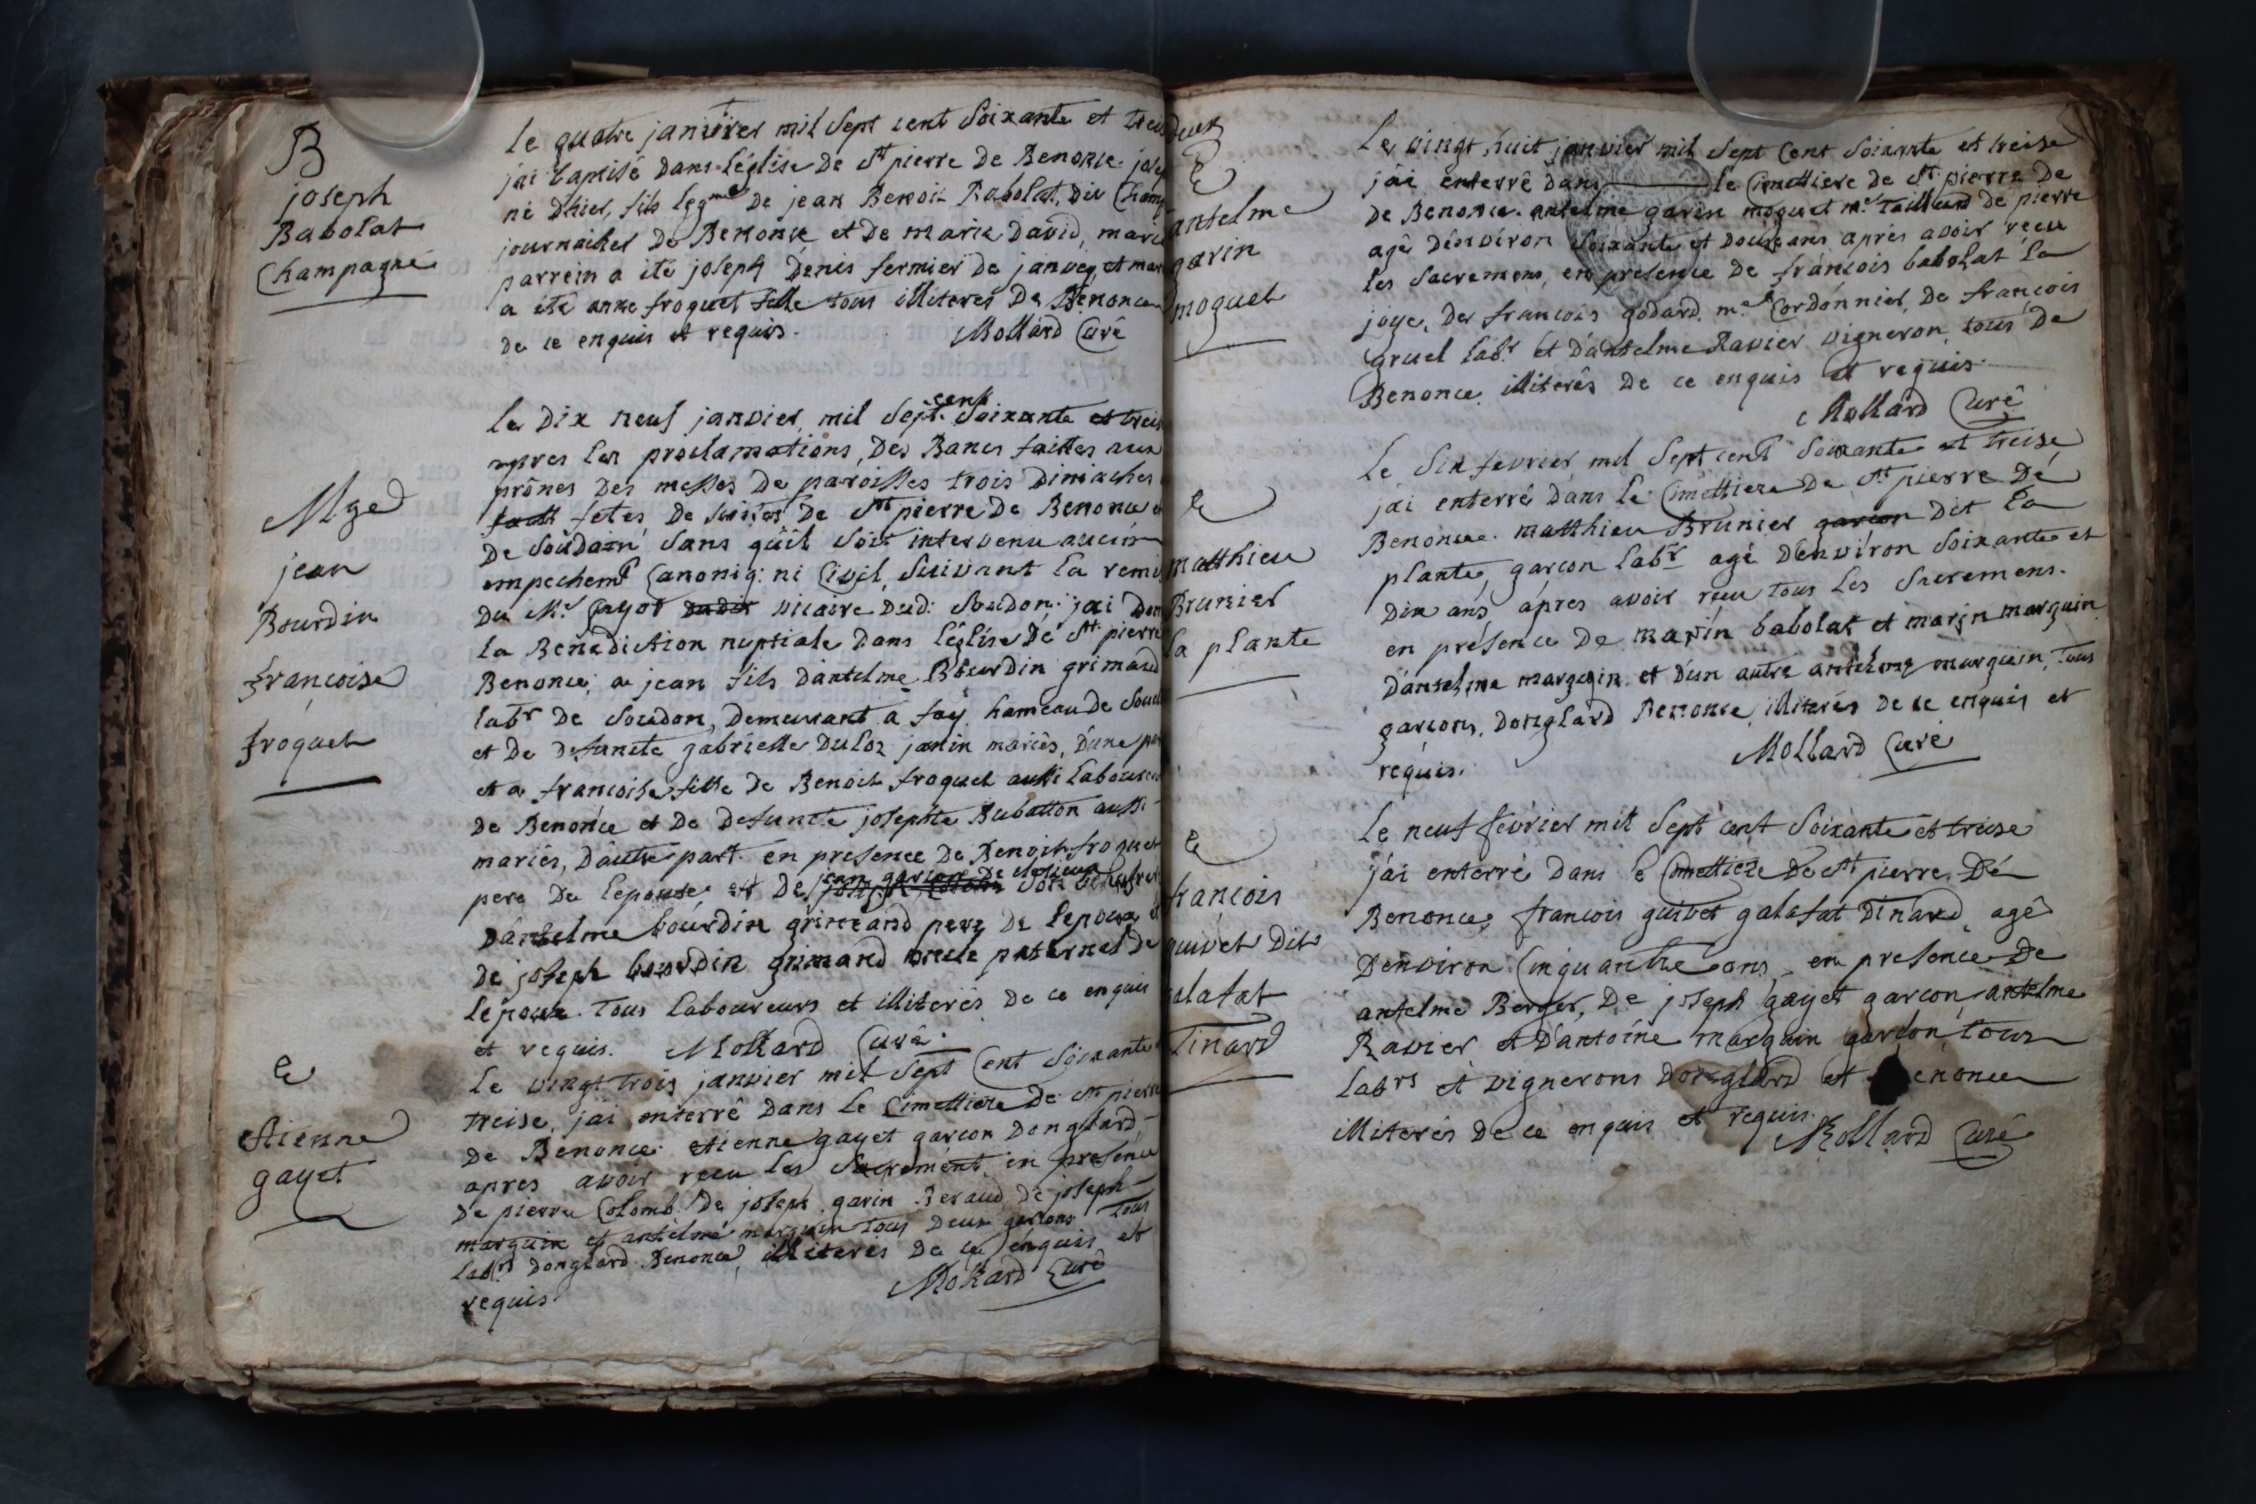 B
joseph
Babolat
Champagne
le quatre janvier mil sept cent soixante et treise
jai baptisé dans l'église de st pierre de Benonce joseph
né d'hier, fils legme de jean Benoit Babolat, dit Champ
journailier de Benonce et de marie david, mariés
parrein a ité joseph denis fermier de janvey, et mar
a ité anne froguet fille tous illiterés de Benonce
de ce enquis et requis.
Mollard Curé
Mge
jean
Bourdin
françoise
froguet
le dix neuf janvier, mil sept cent soixante et treise
apres les proclamations, des Bancs faittes aux
prônes des messes de paroisses trois dimaches
fetes de suites de st pierre de Benonce et
de soudain sans qu'il soit intervenu aucun
empechemt Canoniq: ni Civil, suivant la remi
du Mr gayot vicaire dud: soudon: jai don
la Bénédiction nuptiale dans l'église dé st pierre
Benonce, a jean fils d'antelme Bourdin grimand
labr de soudon, demeurant a fay hameau de soud
et de defuncte gabrielle duloz janin mariés, d'une part
et a francoise fille de Benoit froguet aussi laboureur
de Benonce et de defuncte josephte Rubatton aussi
mariés, d'autre part. en presence de Benoit froguet
pere de l'epouse et de jean garçon de son
d'antelme bourdin grimand pere de l'epoux et
de joseph bourdin grimand oncle paternel de
lépoux. tous laboureurs et illiterés de ce enquis
et requis. Mollard Curé.
e
étienne
gayet
le vingt trois janvier mil sept cent soixante
treise, jai enterré dans le Cimettiere de st pierre
de Benonce etienne gayet garçon donglard
apres avoir recu les sacrement en presence
de pierre Colomb. de joseph garin Beraud de joseph
marguin et antelme marguin tous deux garçons tous
labrs donglard Benonce, illiterés de ce enquis et
requis.
Mollard Curé
e
antelme
garin
moguet
Le vingt huit janvier mil sept cent soixante et treise
jai enterré dans le Cimettiere de st pierre de
de Benonce. antelme garin moguet me tailleur de pierre
agé d'environ soixante et douse ans, aprés avoir recu
les sacremens, en presence de françois babolat la
joye, de francois godard me Cordonnier, de francois
gruel labr et d'antelme Ravier vigneron tous de
Benonce illiterés de ce enquis et requis.
Mollard Curé
e
matthieu
Brunier
la plante
Le six fevrier mil sept cent soixante et treise
jai enterré dans le Cimettiere de st pierre de
Benonce. matthieu Brunier garcon dit la
plante, garcon labr agé d'environ soixante et
dix ans, apres avoir recu tous les sacremens.
en présence de marin babolat et marin marguin
d'antelme marguin et d'un autre antelme marguin, tous
garcons, donglard Benonce, illiterés de ce enquis et
requis.
Mollard Curé
e
françois
guivet dit
galafat
Tinard
Le neuf février mil sept cent soixante et treise
j'ai enterré dans le Cimettiere de st pierre dé
Benonce, francois guivet galafat Dinard, agé
d'environ Cinquantre ans, en presence de
antelme Berger, de joseph gayet garcon antelme
Ravier et d'antoine marguin garçon, tous
labrs et vignerons donglard et Benonce
illiterés de ce enquis et requis.
Mollard Curé